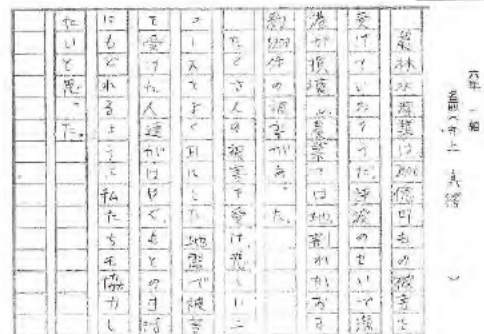 六年 一組
名前（井上 真緒）
農林水産業は2006億円もの被害を
受けていたでした。津波のせいで漁
港が損壊、農業では地割れがおき
数件の被害があった。
たくさんの被害を受け悲しいニ
ュースでよく耳にした地震で被害
を受けた人達がはやく、もとの生活
にもどれるように私たちも協力し
たいと思った。